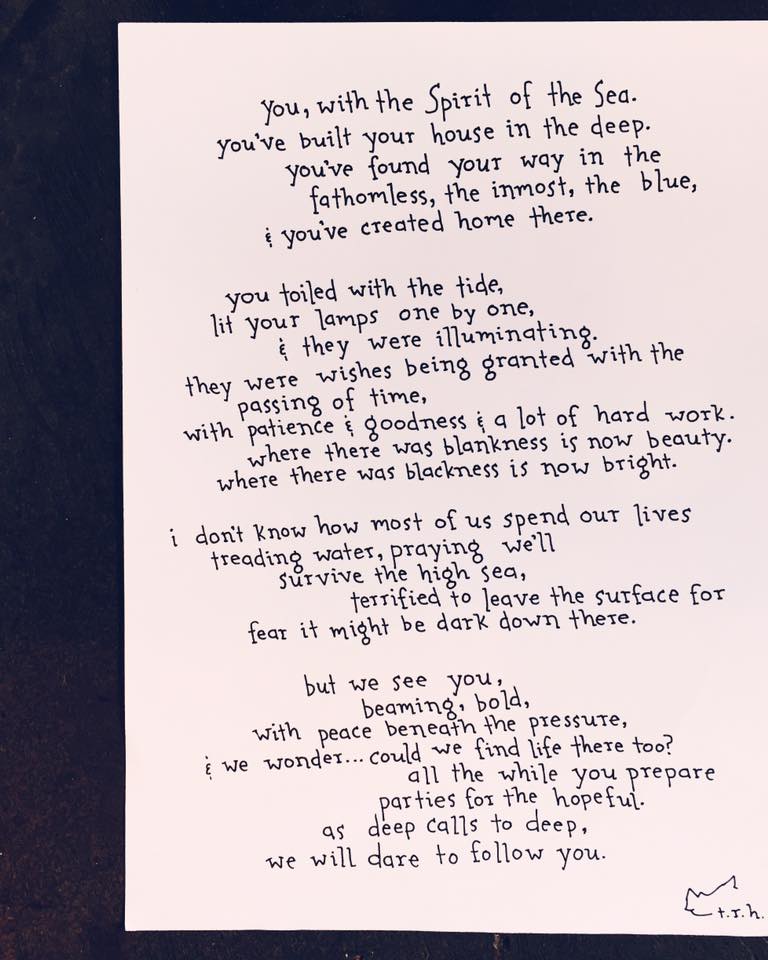 you, with the Spirit of the Sea.
you've built your house in the deep.
you've found your way in the
fathomless, the inmost, the blue,
& you've created home there.
you toiled with the tide,
lit your lamps one by one,
& they were illuminating.
they were wishes being granted with the
passing of time,
with patience & goodness & a lot of hard work.
where there was blankness is now beauty.
where there was blackness is now bright.
i don't know how most of us spend our lives
treading water, praying we'll
survive the high sea,
terrified to leave the surface for
fear it might be dark down there.
but we see you,
beaming, bold,
with peace beneath the pressure,
& we wonder... could we find life there too?
all the while you prepare
parties for the hopeful.
as deep calls to deep,
we will dare to follow you.
t.r.h.